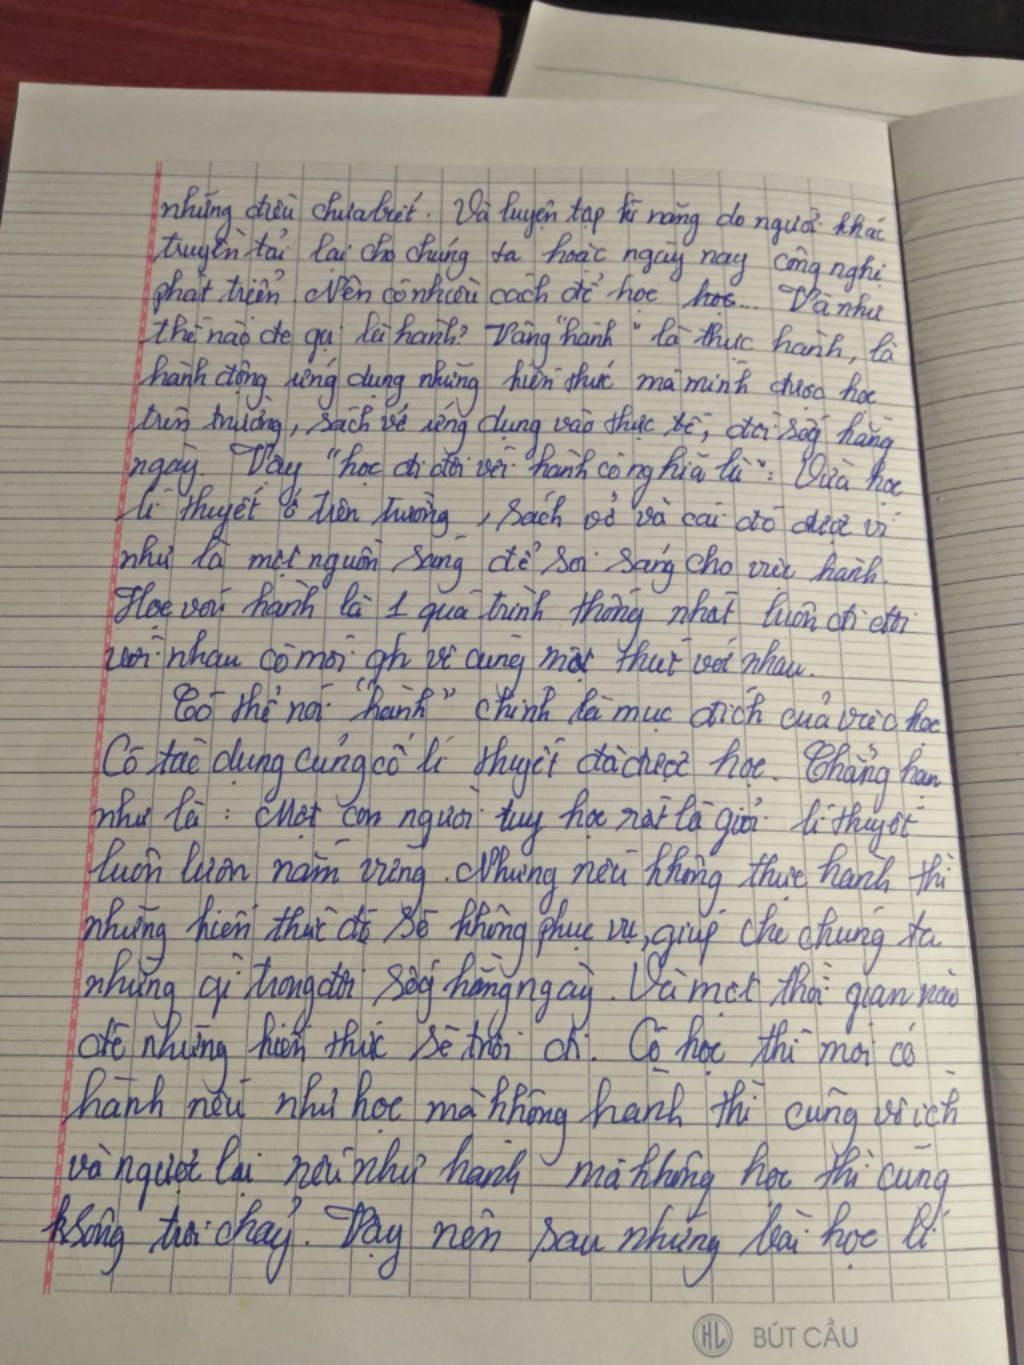 những điều chưa biết. Và luyện tạp kĩ năng do người khác
truyền tải lại cho chúng ta hoặc ngày nay công nghị
phát triển Nên có nhiều cách để học học... Và như
thế nào đe gọi là hành? Vâng "hành" là thực hành, là
hành động ứng dụng những kiến thức mà mình được học
trên trường, sách vở ứng dụng vào thực tế, đời sống hằng
ngày. Vậy "học đi đôi với hành có nghĩa là": Vừa học
lí thuyết ở trên trường, sách vở và cái đó được ví
như là một nguồn sáng để soi sáng cho việc hành.
Học với hành là 1 quá trình thống nhất luôn đi đôi
với nhau có mối qh vô cùng mật thiết với nhau.
Có thể nói "hành" chính là mục đích của việc học
Có tác dụng củng cố lí thuyết đã được học. Chẳng hạn
như là: Một con người tuy học rất là giỏi lí thuyết
luôn luôn nắm vững. Nhưng nếu không thực hành thì
những kiến thức đó sẽ không phục vụ, giúp cho chúng ta
những gì trong đời sống hằng ngày. Và một thời gian nào
đó những kiến thức sẽ trôi đi. Có học thì mới có
hành nếu như học mà không hành thì cũng vô ích
và ngược lại nếu như hành mà không học thì cũng
không trôi chảy. Vậy nên sau những bài học lí
HL BÚT CẦU